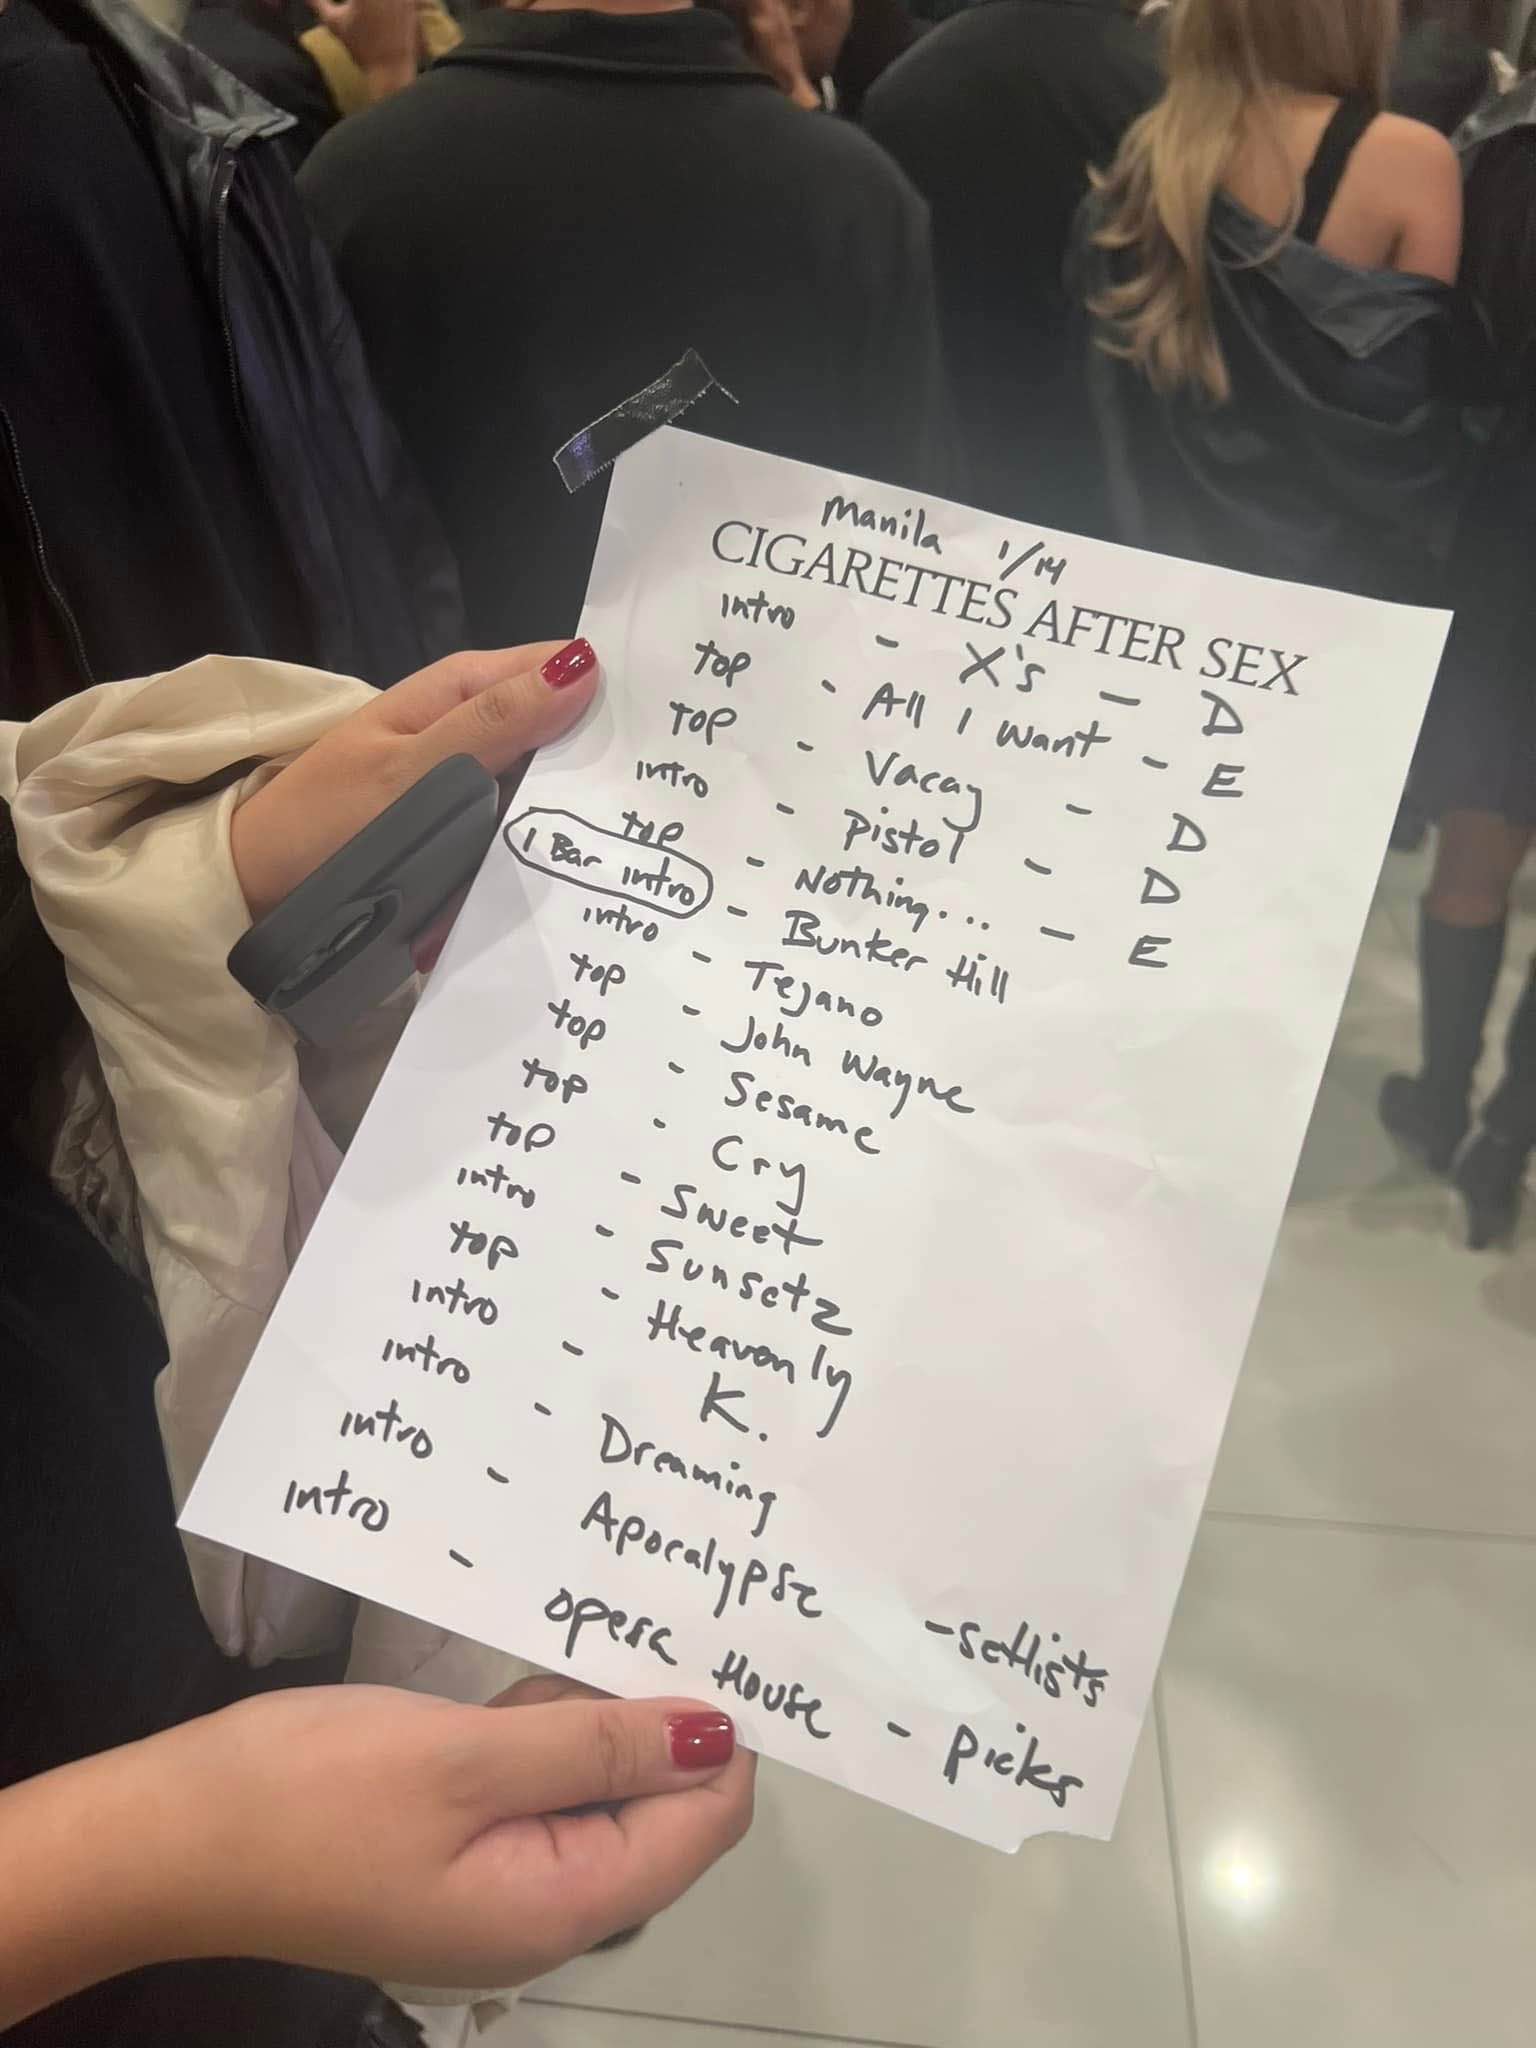 Manila 1/14
CIGARETTES AFTER SEX
intro - X's - D
top - All I Want - E
top - Vacay - D
intro - Pistol - D
top - Nothing... - E
1 Bar intro - Bunker Hill
intro - Tejano
top - John Wayne
top - Sesame
top - Cry
top - Sweet
intro - Sunsetz
top - Heavenly
intro - K.
intro - Dreaming
intro - Apocalypse - setlists
intro - Opera House - picks